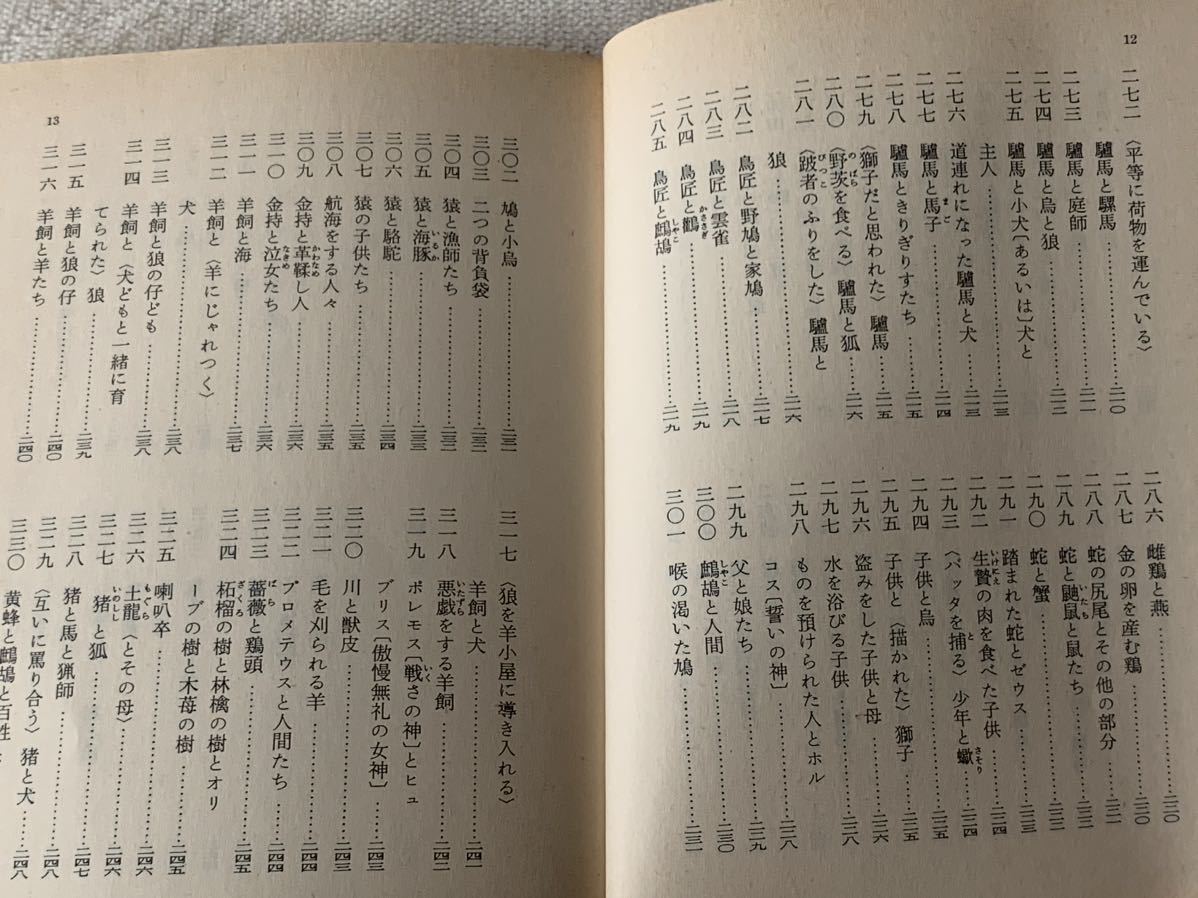 12
二七二 〈平等に荷物を運んでいる〉
驢馬と騾馬……二一〇
二七三 驢馬と庭師……二一一
二七四 驢馬と烏と狼……二一二
二七五 驢馬と小犬〔あるいは〕犬と
主人……二一三
二七六 道連れになった驢馬と犬……二一三
二七七 驢馬と馬子……二一四
二七八 驢馬ときりぎりすたち……二一五
二七九 〈獅子だと思われた〉驢馬……二一五
二八〇 〈野茨を食べる〉驢馬と狐……二一六
二八一 〈跛者のふりをした〉驢馬と
狼……二一六
二八二 鳥匠と野鳩と家鳩……二一七
二八三 鳥匠と雲雀……二一八
二八四 鳥匠と鸛……二一九
二八五 鳥匠と鷓鴣……二一九
二八六 雌鶏と燕……二二〇
二八七 金の卵を産む鶏……二二〇
二八八 蛇の尻尾とその他の部分……二二一
二八九 蛇と鼬鼠と鼠たち……二二二
二九〇 蛇と蟹……二二二
二九一 踏まれた蛇とゼウス……二二三
二九二 生贄の肉を食べた子供……二二四
二九三 〈バッタを捕る〉少年と蠍……二二四
二九四 子供と烏……二二五
二九五 子供と〈描かれた〉獅子……二二五
二九六 盗みをした子供と母……二二六
二九七 水を浴びる子供……二二八
二九八 ものを預けられた人とホル
コス〔誓いの神〕……二二八
二九九 父と娘たち……二二九
三〇〇 鷓鴣と人間……二三〇
三〇一 喉の渇いた鳩……二三一
13
三〇二 鳩と小烏……二三一
三〇三 二つの背負袋……二三二
三〇四 猿と漁師たち……二三二
三〇五 猿と海豚……二三三
三〇六 猿と駱駝……二三四
三〇七 猿の子供たち……二三五
三〇八 航海をする人々……二三五
三〇九 金持と革鞣し人……二三六
三一〇 金持と泣女たち……二三六
三一一 羊飼と海……二三七
三一二 羊飼と〈羊にじゃれつく〉
犬……二三八
三一三 羊飼と狼の仔ども……二三八
三一四 羊飼と〈犬どもと一緒に育
てられた〉狼……二三九
三一五 羊飼と狼の仔……二四〇
三一六 羊飼と羊たち……二四〇
三一七 〈狼を羊小屋に導き入れる〉
羊飼と犬……二四一
三一八 悪戯をする羊飼……二四二
三一九 ポレモス〔戦さの神〕とヒュ
ブリス〔傲慢無礼の女神〕……二四三
三二〇 川と獣皮……二四三
三二一 毛を刈られる羊……二四四
三二二 プロメテウスと人間たち……二四四
三二三 薔薇と鶏頭……二四五
三二四 柘榴の樹と林檎の樹とオリ
ーブの樹と木苺の樹……二四五
三二五 喇叭卒……二四五
三二六 土龍〈とその母〉……二四六
三二七 猪と狐……二四六
三二八 猪と馬と猟師……二四七
三二九 〈互いに罵り合う〉猪と犬……二四八
三三〇 黄蜂と鷓鴣と百姓……二四八